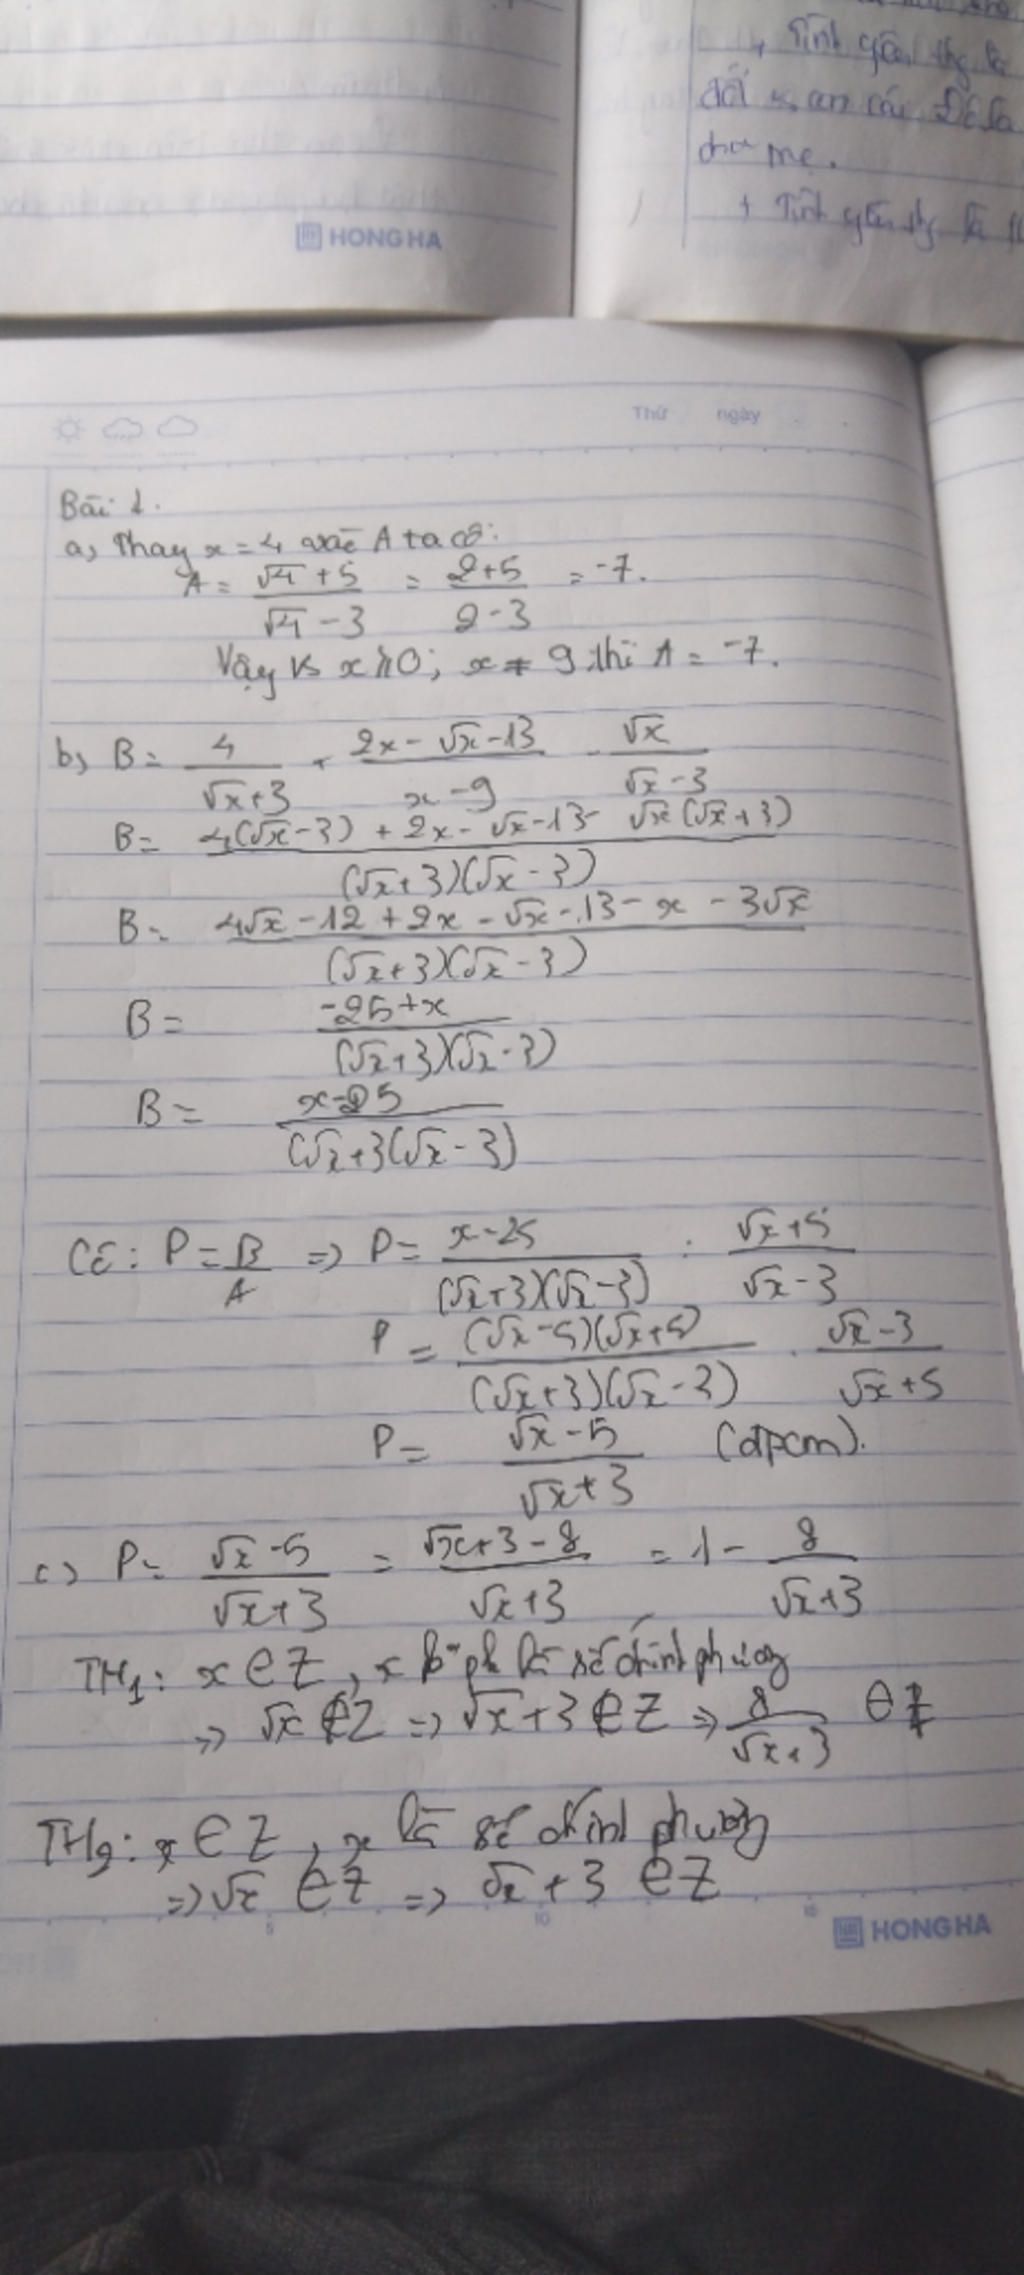 + Tình yêu thg là
đối vs con cái. Đó là
cha mẹ.
+ Tình yêu thg là
HONG HA
Thứ ngày
Bài 1.
a, Thay x = 4 vào A ta có:
A = √4 + 5 / √4 - 3 = 2 + 5 / 2 - 3 = -7.
Vậy vs x ≥ 0; x ≠ 9 thì A = -7.
b, B = 4 / √x + 3 + 2x - √x - 13 / x - 9 - √x / √x - 3
B = 4(√x - 3) + 2x - √x - 13 - √x(√x + 3) / (√x + 3)(√x - 3)
B = 4√x - 12 + 2x - √x - 13 - x - 3√x / (√x + 3)(√x - 3)
B = -25 + x / (√x + 3)(√x - 3)
B = x - 25 / (√x + 3(√x - 3)
Có: P = B / A => P = x - 25 / (√x + 3)(√x - 3) : √x + 5 / √x - 3
P = (√x - 5)(√x + 5) / (√x + 3)(√x - 3) . √x - 3 / √x + 5
P = √x - 5 / √x + 3 (đpcm).
c, P = √x - 5 / √x + 3 = √x + 3 - 8 / √x + 3 = 1 - 8 / √x + 3
TH1: x ∈ Z, x k phải là số chính phương
=> √x ∉ Z => √x + 3 ∉ Z => 8 / √x + 3 ∉ Z
TH2: x ∈ Z, x là số chính phương
=> √x ∈ Z => √x + 3 ∈ Z
5 10 15
HONG HA